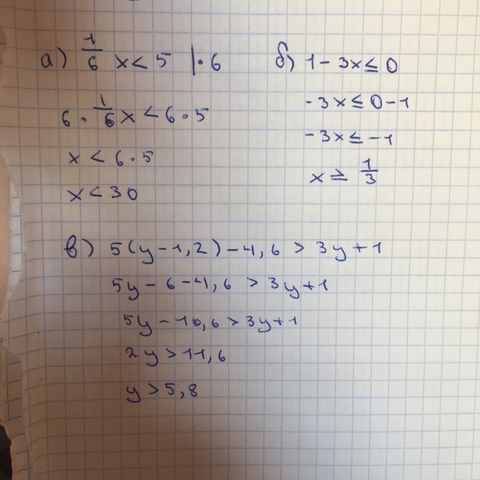 а) 1/6 x < 5 | · 6
6 · 1/6 x < 6 · 5
x < 6 · 5
x < 30
б) 1 - 3x ≤ 0
-3x ≤ 0 - 1
-3x ≤ -1
x ≥ 1/3
в) 5(y - 1,2) - 4,6 > 3y + 1
5y - 6 - 4,6 > 3y + 1
5y - 10,6 > 3y + 1
2y > 11,6
y > 5,8